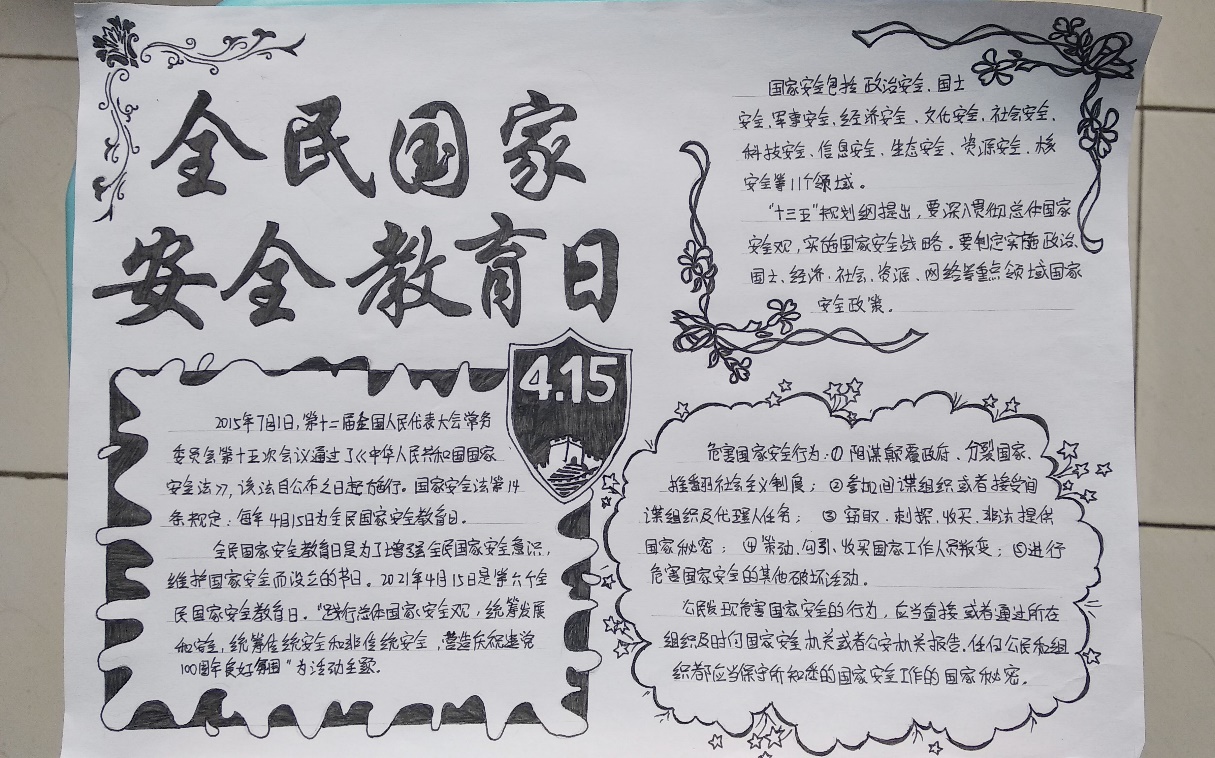 全民国家
安全教育日
4.15
2015年7月1日,第十二届全国人民代表大会常务
委员会第十五次会议通过了《中华人民共和国国家
安全法》,该法自公布之日起施行。国家安全法第14
条规定:每年4月15日为全民国家安全教育日。
全民国家安全教育日是为了增强全民国家安全意识,
维护国家安全而设立的节日。2021年4月15日是第六个全
民国家安全教育日。“践行总体国家安全观,统筹发展
和安全,统筹传统安全和非传统安全,营造庆祝建党
100周年良好氛围”为活动主题。
国家安全包括政治安全、国土
安全、军事安全、经济安全、文化安全、社会安全、
科技安全、信息安全、生态安全、资源安全、核
安全等11个领域。
“十三五”规划纲提出,要深入贯彻总体国家
安全观,实施国家安全战略。要制定实施政治、
国土、经济、社会、资源、网络等重点领域国家
安全政策。
危害国家安全行为:①阴谋颠覆政府、分裂国家、
推翻社会主义制度;②参加间谍组织或者接受间
谍组织及代理人任务;③窃取、刺探、收买、非法提供
国家秘密;④策动、勾引、收买国家工作人员叛变;⑤进行
危害国家安全的其他破坏活动。
公民发现危害国家安全的行为,应当直接或者通过所在
组织及时向国家安全机关或者公安机关报告。任何公民和组
织都应当保守所知悉的国家安全工作的国家秘密。